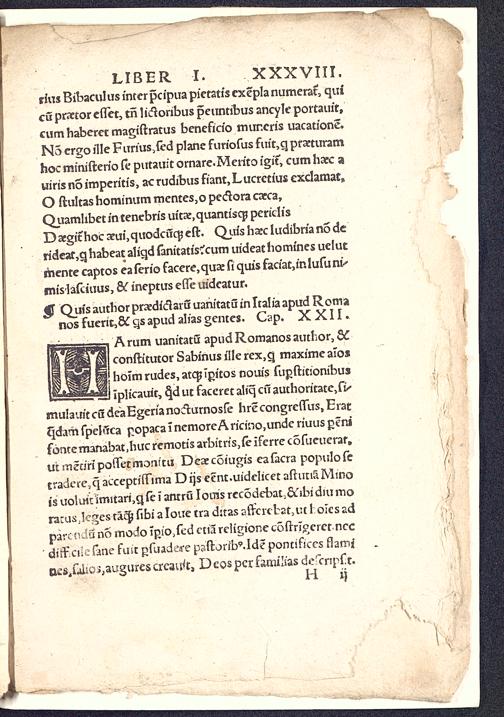 LIBER I. XXXVIII.
rius Bibaculus inter p̄cipua pietatis exẽpla numerat᷑, qui
cũ prætor esset, tñ lictoribus p̄euntibus ancyle portauit,
cum haberet magistratus beneficio muneris uacationẽ.
Nõ ergo ille Furius, sed plane furiosus fuit, q præturam
hoc ministerio se putauit ornare. Merito igit᷑, cum hæc a
uiris nõ imperitis, ac rudibus fiant, Lucretius exclamat,
O stultas hominum mentes, o pectora cæca,
Quamlibet in tenebris uitæ, quantisq; periclis
Dægit᷑ hoc æui, quodcũq; est. Quis hæc ludibria nõ de
rideat, q habeat aliqd sanitatis? cum uideat homines uelut
mente captos ea serio facere, quæ si quis faciat, in lusu ni-
mis lasciuus, & ineptus esse uideatur.
¶ Quis author prædictarũ uanitatũ in Italia apud Roma
nos fuerit, & qs apud alias gentes. Cap. XXII.
HArum uanitatũ apud Romanos author, &
constitutor Sabinus ille rex, q maxime aĩos
hoĩm rudes, atq; ĩpitos nouis supstitionibus
ĩplicauit, qd ut faceret aliq cũ authoritate, si-
mulauit cũ dea Egeria nocturnos se hr̃e congressus, Erat
q̃dam spelũca popaca ĩ nemore Aricino, unde riuus pẽni
fonte manabat, huc remotis arbitris, se ĩferre cõsueuerat,
ut mẽtiri posset monitu Deæ cõiugis ea sacra populo se
tradere, q̃ acceptissima Diis eẽnt. uidelicet astutiã Mino
is uoluit imitari, q se ĩ antrũ Iouis recõdebat, & ibi diu mo
ratus, leges tãq; sibi a Ioue tra ditas afferebat, ut hoĩes ad
parendũ nõ modo ĩpio, sed etiã religione cõstrĩgeret. nec
difficile sane fuit psuadere pastorib⁹. Idẽ pontifices flami
nes, salios, augures creauit, Deos per familias descripsit.
H ij